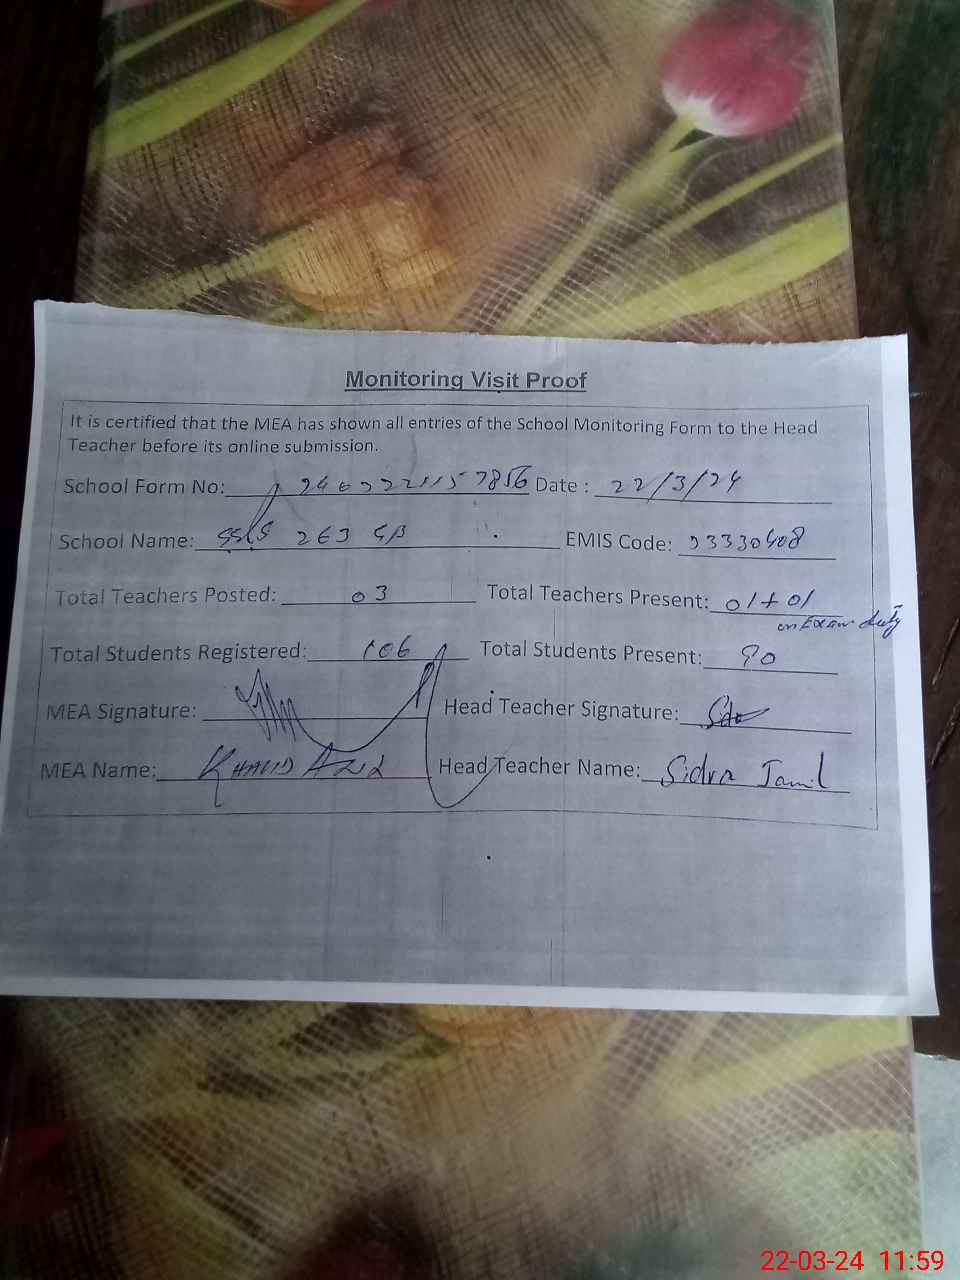 Monitoring Visit Proof
It is certified that the MEA has shown all entries of the School Monitoring Form to the Head
Teacher before its online submission.
School Form No: Date : 22/3/24
School Name: 263 GB EMIS Code: 33330408
Total Teachers Posted: 03 Total Teachers Present: 01+01
on Exam duty
Total Students Registered: 106 Total Students Present: 90
MEA Signature: Head Teacher Signature:
MEA Name: KHALID AZIZ Head Teacher Name: Sidra Jamil
22-03-24 11:59